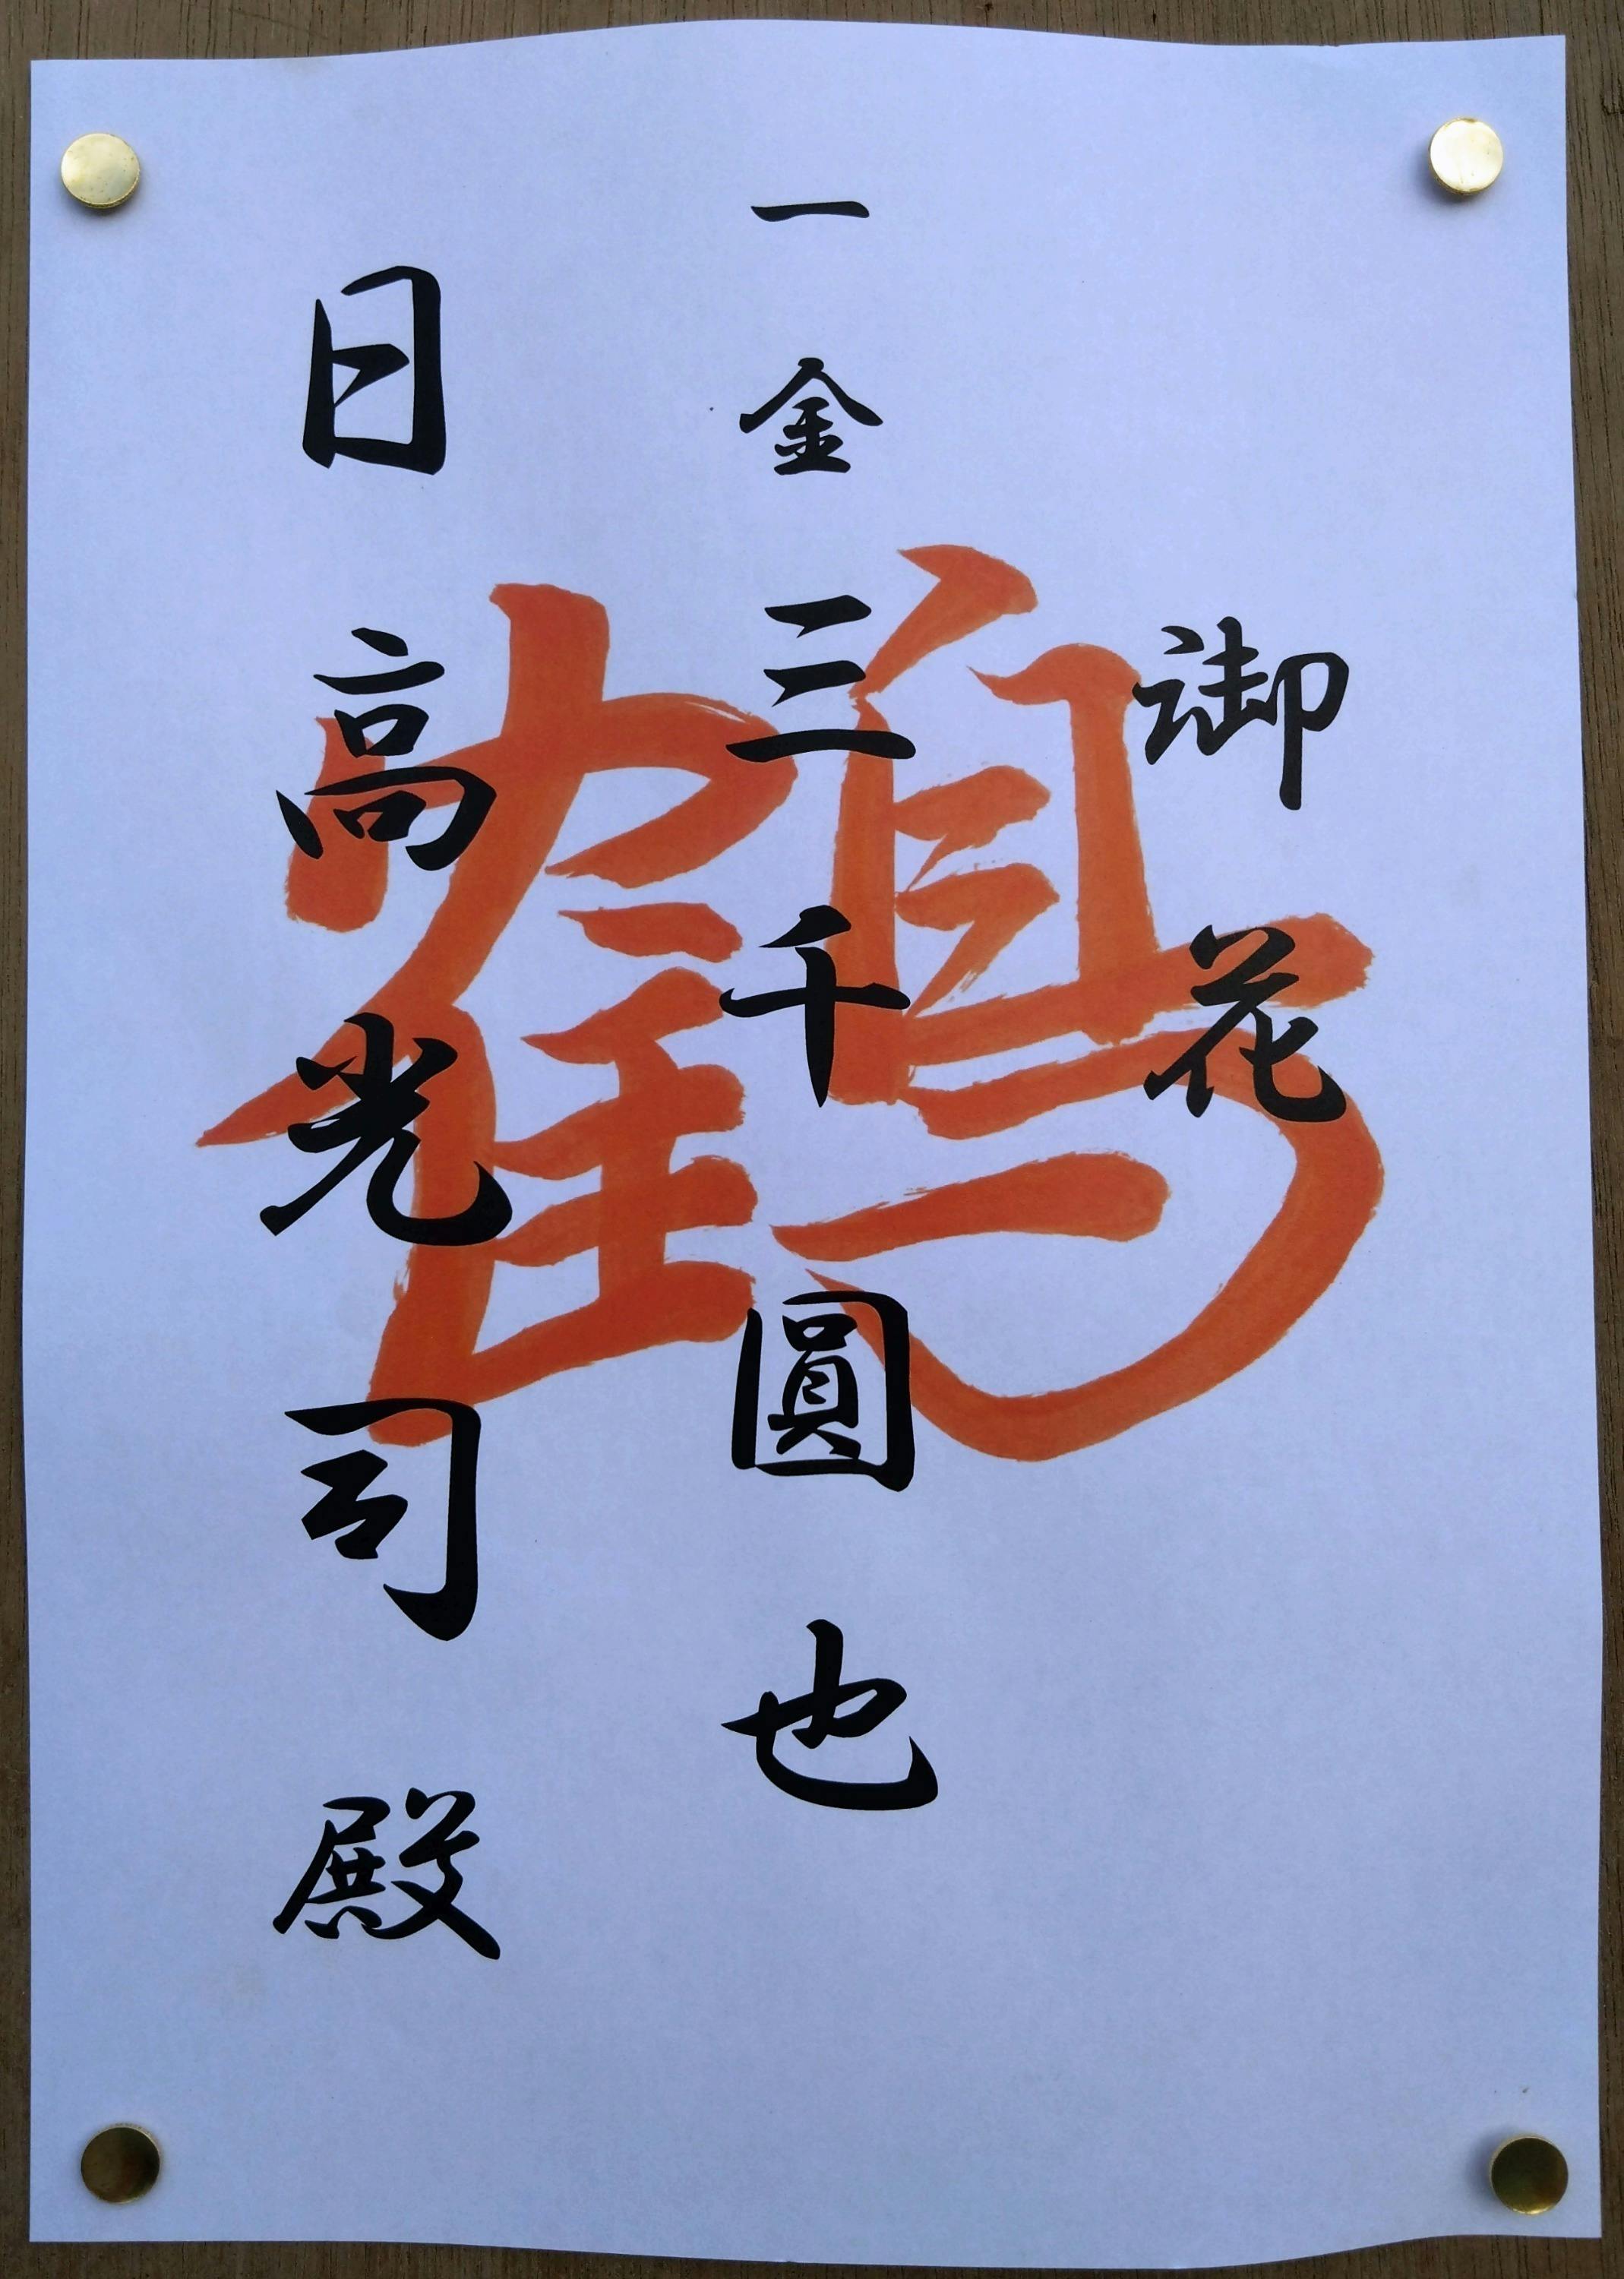 御花
一金三千圓也
日高光司殿
鶴